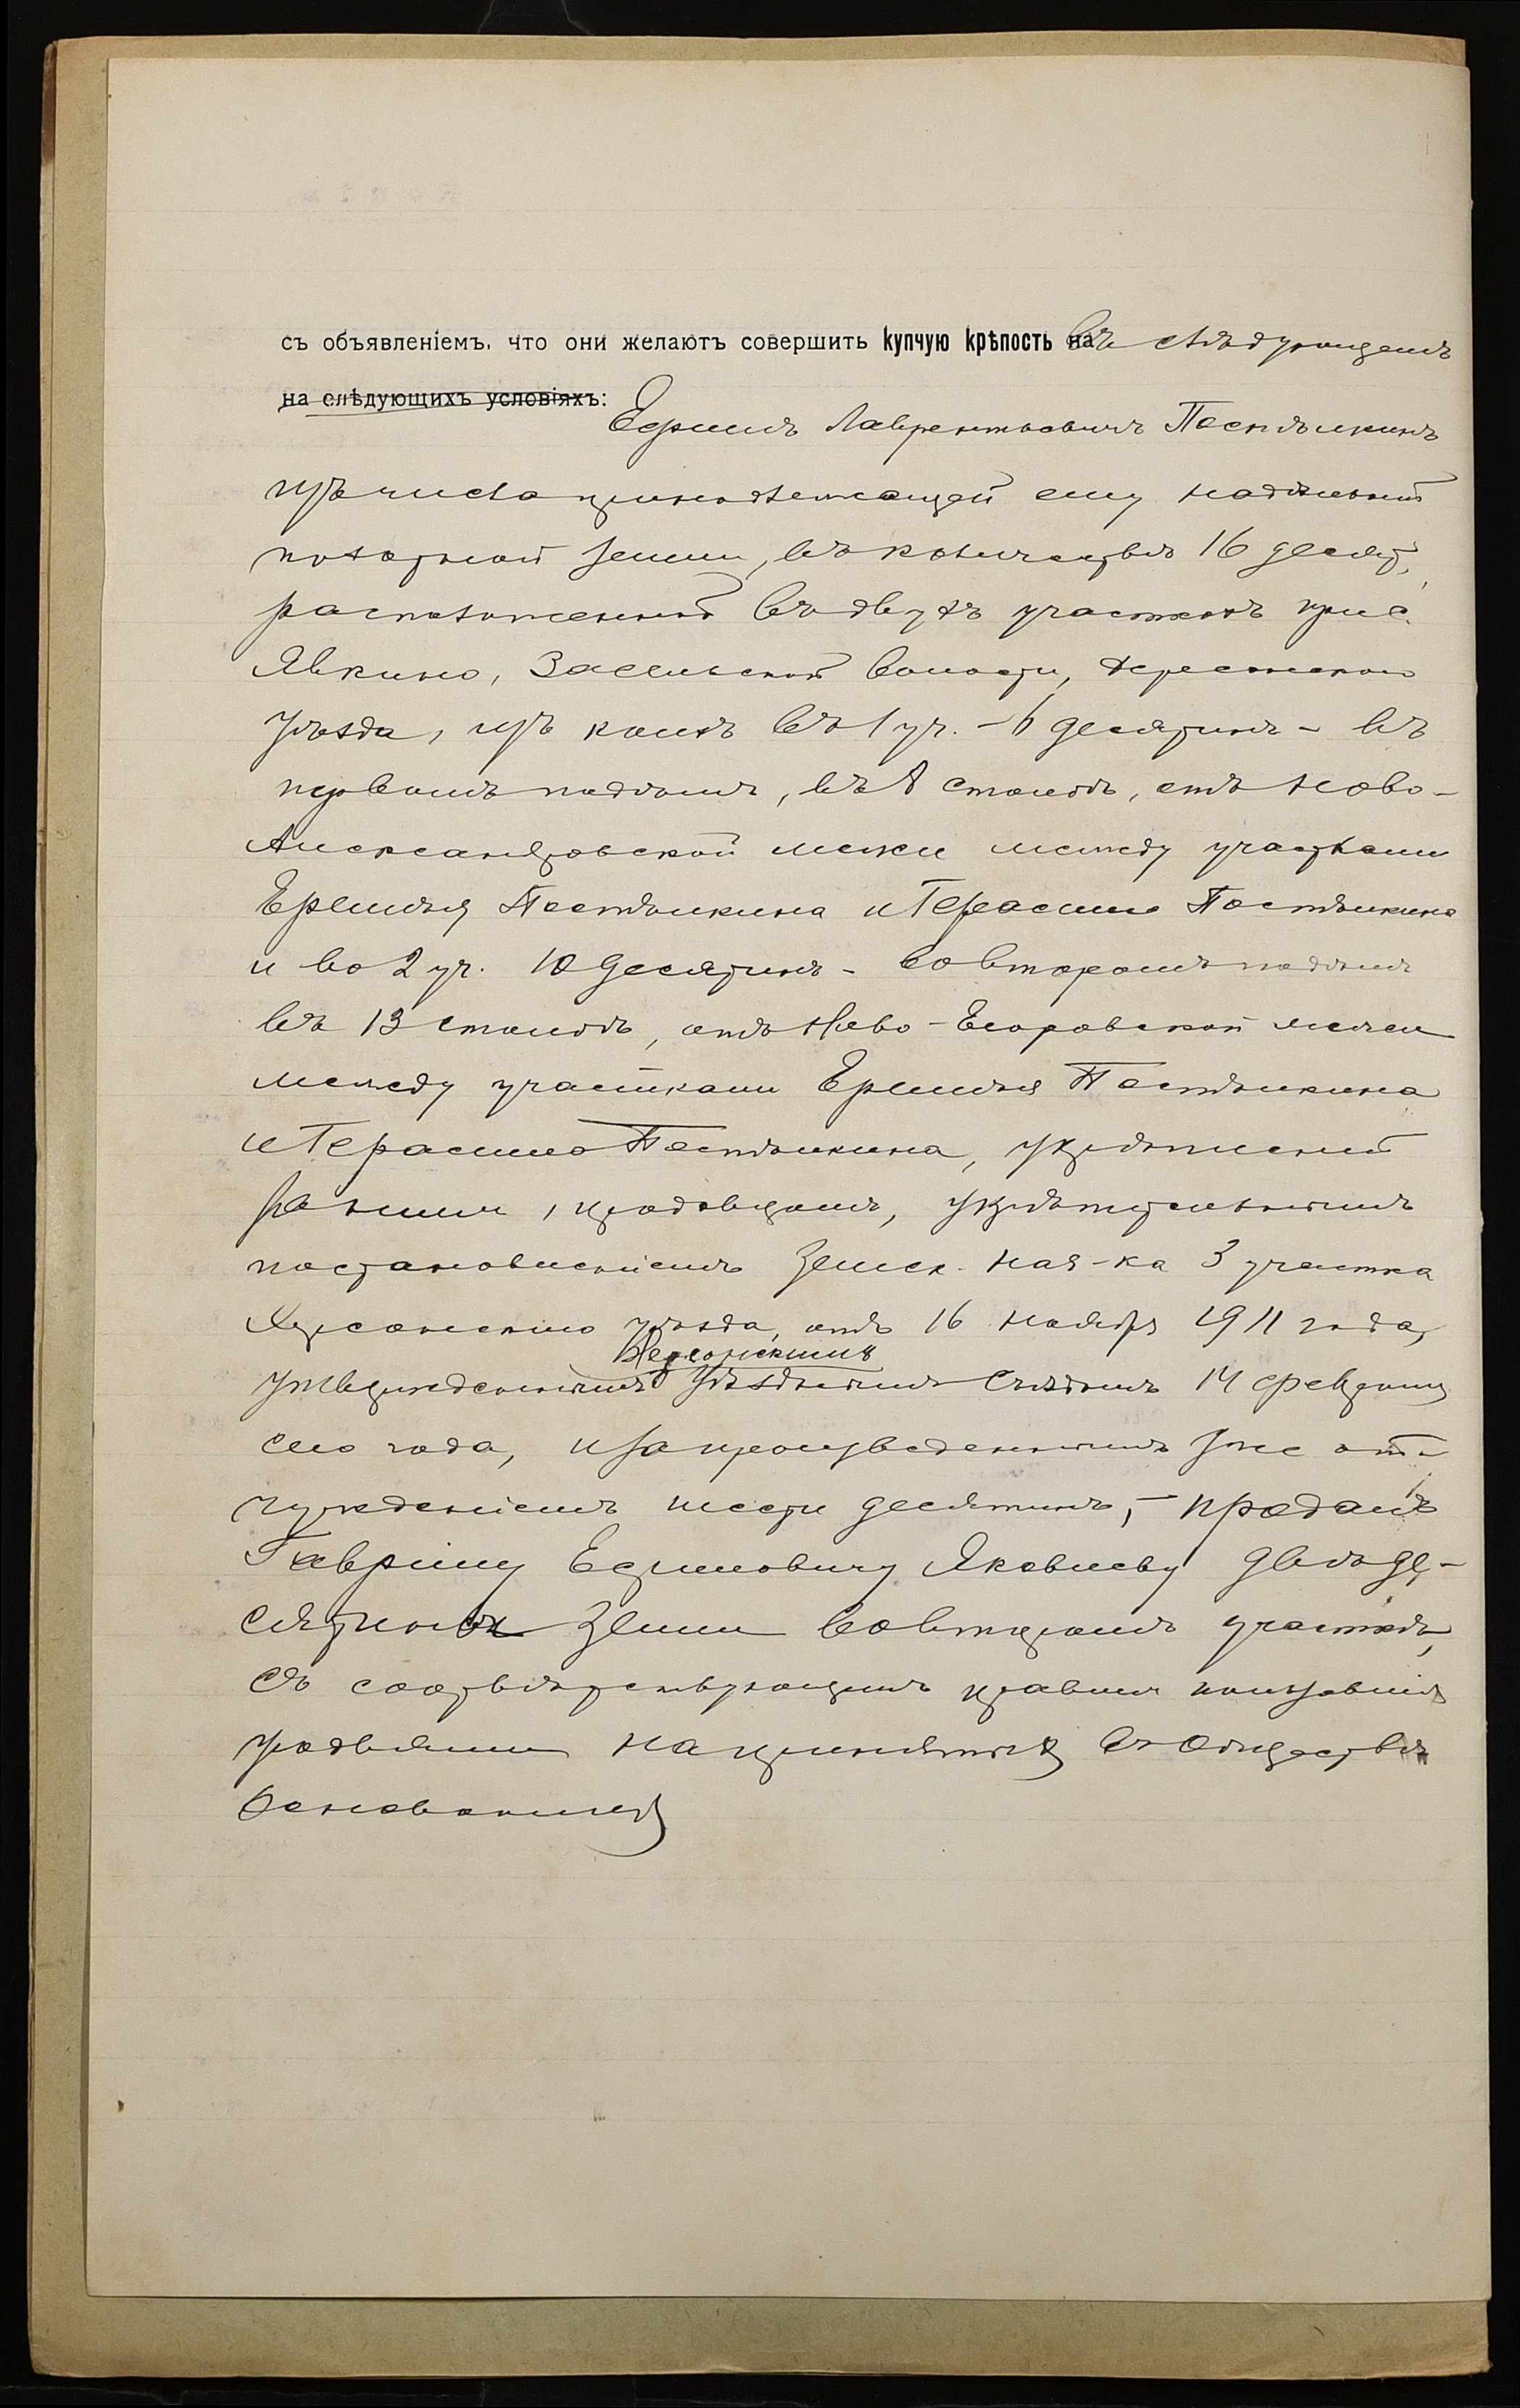 съ объявленіемъ, что они желаютъ совершить купчую крѣпость на въ слѣдующемъ
на слѣдующихъ условіяхъ:
Ефимъ Лаврентьевичъ Постѣлкинъ
изъ числа принадлежащей ему надѣльной
полевой земли, въ количествѣ 16 десят.,
расположенной въ двухъ участкахъ при с.
Явкино, Засельской волости, Херсонскаго
уѣзда, изъ коихъ въ 1 уч. - 6 десятинъ - въ
первомъ полѣ, въ 8 столбѣ, отъ Ново-
Александровской межи между участками
Еремѣя Постѣлкина и Герасима Постѣлкина
и во 2 уч. 10 десятинъ - во второмъ
въ 13 столбѣ, отъ Ново-Егоровской межи
между участками Еремѣя Постѣлкина
и Герасима Постѣлкина, укрѣпленной
за нимъ, продавцомъ, укрѣпительнымъ
постановленіемъ Земск. Нач-ка 3 участка
Херсонскаго уѣзда, отъ 16 ноября 1911 года,
Херсонскимъ
утвержденнымъ Уѣзднымъ Съѣздомъ 14 февраля
сего года, и за произведеннымъ уже от-
чужденіемъ шести десятинъ, - продалъ
Гаврилу Ефимовичу Яковлеву двѣ де-
сятины земли во второмъ участкѣ,
съ соотвѣтствующимъ правомъ пользованія
угодьями на принятыхъ въ обществѣ
основаніяхъ